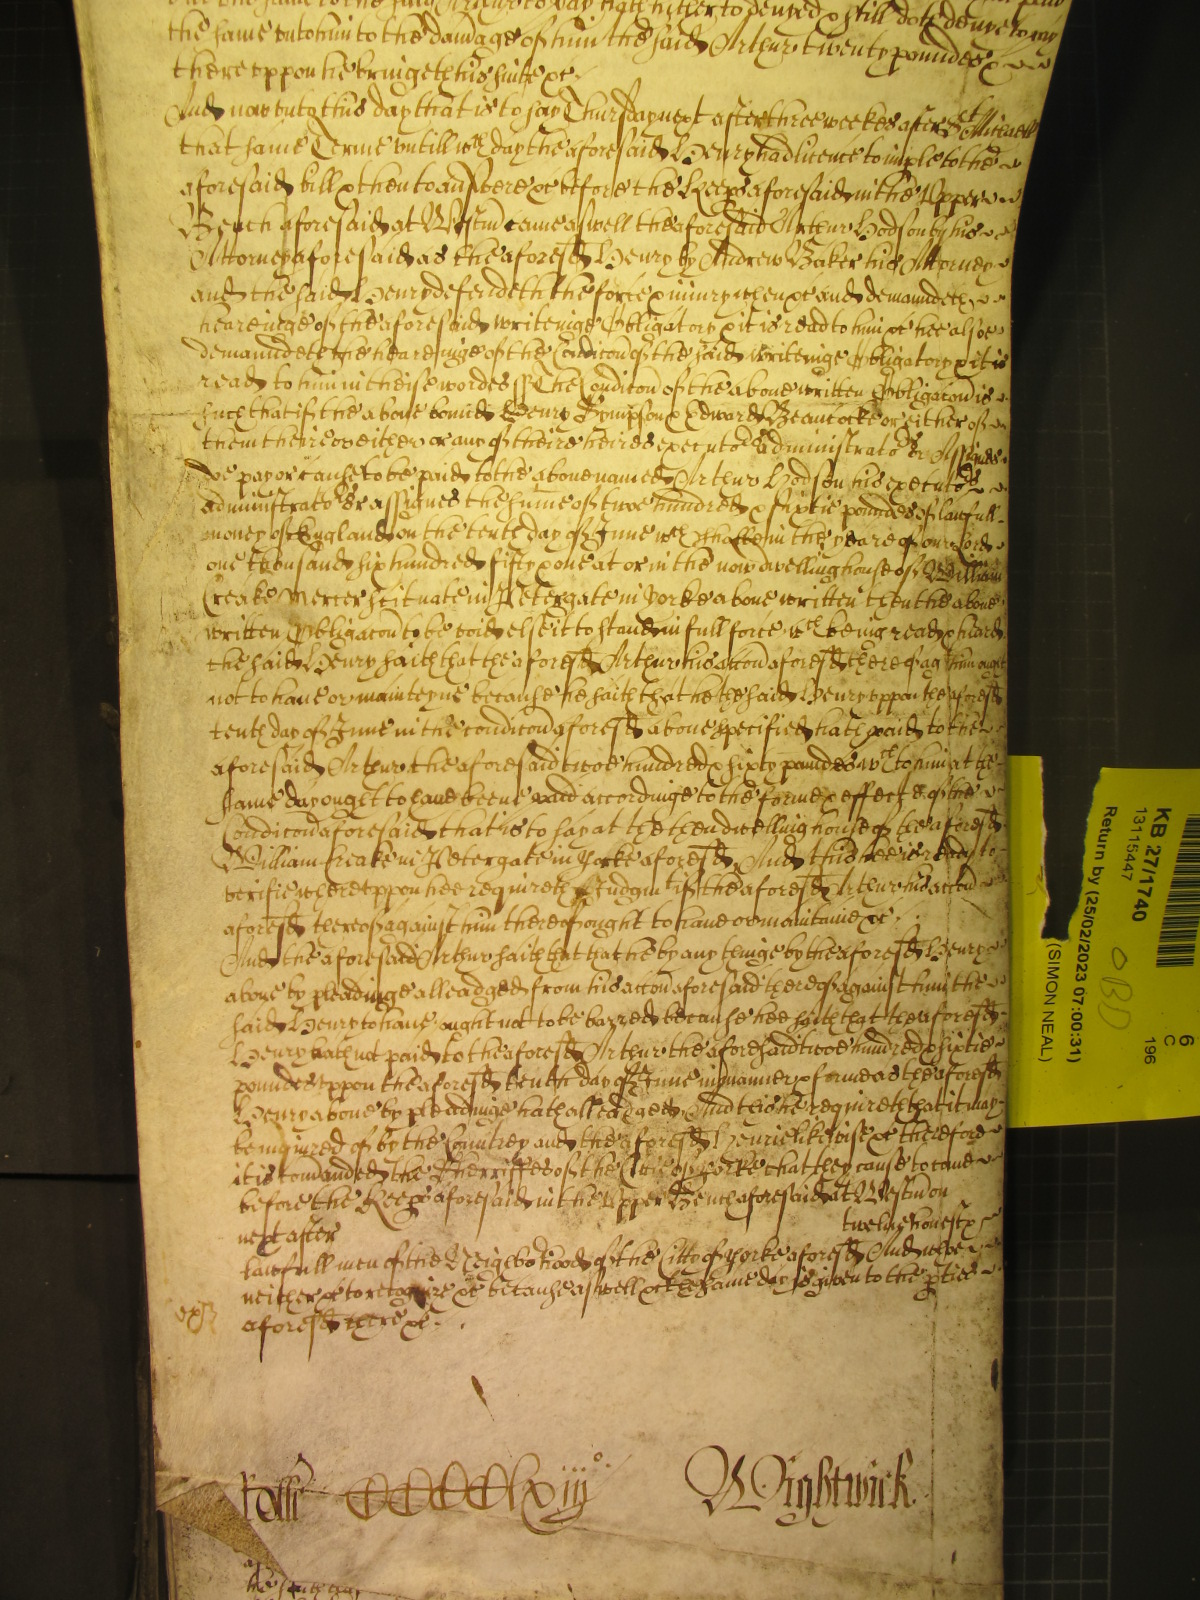 the same unto him to the damage of him the said Arthur twenty poundes &
thereuppon he bringeth his suite &c
And now unto this day that is to say Thursday next after three weekes after St Michaell
that same Terme untill wch day the aforesaid Henry had licence to imple to the
aforesaid bill & then to answere &c before the Keeps aforesaid in the Upper
Bench aforesaid at Westm came aswell the aforesaid Arthur Hodson by his
Attorney aforesaid as the aforesd Henry by Andrew Baker his Attorney
and the said Henry defendeth the force & iniury when &c and demandeth
heareinge of the aforesaid writeinge Obligatory & it is read to him &c hee alsoe
demandeth the heareinge of the Condicon of the said writeinge Obligatory & it is
read to him in theise wordes ss The Condicon of the above written Obligacon is
such that if the above bound Henry Sympson & Edward Beaucocke or either of
them their or either or any of theire heires executors administrators or Assignes
doe pay or cause to be paid to the above named Arthur Hodson his executors
administrators or assignes the sume of twoe hundred & sixtie poundes of lawfull
money of England on the tenth day of June wch shalbe in the yeare of our Lord
one thousand six hundred fifty & one at or in the now dwelling house of William
Creake Mercer scituate in Petergate in Yorke above written then the above
written Obligacon to be void else it to stand in full force wch being read & heard
the said Henry saith that the aforesd Arthur his accon aforesd thereof ag him ought
not to have or mainteyne because he saith that he the said Henry uppon the aforesd
tenth day of June in the condicon aforesd above specified hath paid to the
aforesaid Arthur the aforesaid twoe hundred & sixty poundes wch to him at the
same day ought to have beene paid accordinge to the forme & effect of the
Condicon aforesaid that is to say at the then dwelling house of the aforesd
William Creake in Petergate in Yorke aforesd And this hee is ready to
verifie whereuppon hee requireth Judgmt if the aforesd Arthur his accon
aforesd thereof against him thereof ought to have or maintaine &c
And the aforesaid Arthur saith that that he by any thinge by the aforesd Henry
above by pleadinge alleadged from his accon aforesaid thereof against him the
said Henry to have ought not to be barred because hee saith that the aforesd
Henry hath not paid to the aforesd Arthur the aforesaid twoe hundred & sixtie
poundes uppon the aforesd tenth day of June in manner & forme as the aforesd
Henry above by pleadinge hath alleadged And this he requireth that it may
be inquired of by the Countrey and the aforesd Henrie likewise &c therefore
it is comanded the Sherriffes of the Citie of Yorke that they cause to come
before the Keeps aforesaid in the Upper Bench aforesaid at Westm on
next after twelve honest &
lawfull men of the Neighborhood of the Citty of Yorke aforesd And whoe
neither &c to recognize &c because aswell &c the same day is given to the pties
aforesd there &c
Rolli CCCCClxiijo
Wightwick
KB 27/1740
13115447
Return by (25/02/2023 07:00:31)
(SIMON NEAL)
OBD
6
C
196